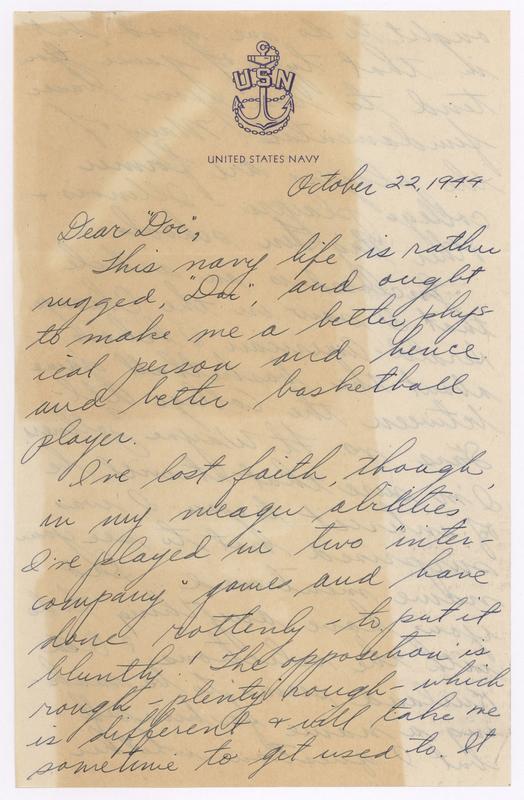 USN
UNITED STATES NAVY
October 22, 1944
Dear "Doc",
This navy life is rather
rugged, "Doc", and ought
to make me a better phys-
ical person and hence
and better basketball
player.
I've lost faith, though,
in my meager abilities
I've played in two "inter-
company" games and have
done rottenly - to put it
bluntly! The opposition is
rough - plenty rough - which
is different & will take me
sometime to get used to. It